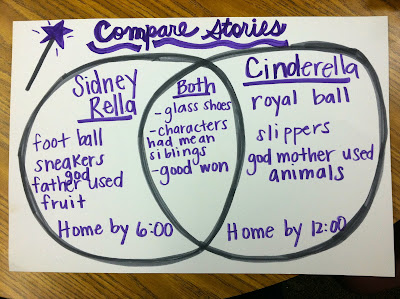 Compare Stories
Sidney
Rella
foot ball
sneakers
god
father used
fruit
Home by 6:00
Both
-glass shoes
-characters
had mean
siblings
-good won
Cinderella
royal ball
slippers
god mother used
animals
Home by 12:00